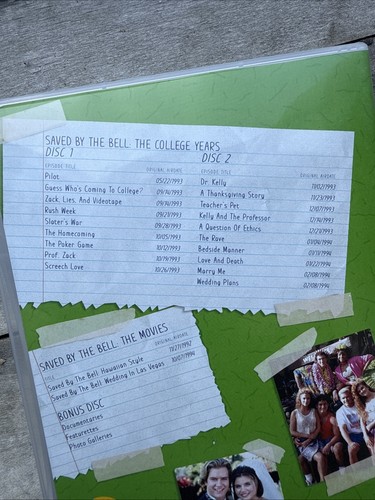 SAVED BY THE BELL: THE COLLEGE YEARS
DISC 1
EPISODE TITLE ORIGINAL AIRDATE
Pilot 05/22/1993
Guess Who's Coming To College? 09/14/1993
Zack, Lies, And Videotape 09/14/1993
Rush Week 09/21/1993
Slater's War 09/28/1993
The Homecoming 10/05/1993
The Poker Game 10/12/1993
Prof. Zack 10/19/1993
Screech Love 10/26/1993
DISC 2
EPISODE TITLE ORIGINAL AIRDATE
Dr. Kelly 11/02/1993
A Thanksgiving Story 11/23/1993
Teacher's Pet 12/07/1993
Kelly And The Professor 12/14/1993
A Question Of Ethics 12/21/1993
The Rave 01/04/1994
Bedside Manner 01/11/1994
Love And Death 01/22/1994
Marry Me 02/08/1994
Wedding Plans 02/08/1994
SAVED BY THE BELL: THE MOVIES
TITLE ORIGINAL AIRDATE
Saved By The Bell Hawaiian Style 11/27/1992
Saved By The Bell Wedding In Las Vegas 10/07/1994
BONUS DISC
Documentaries
Featurettes
Photo Galleries